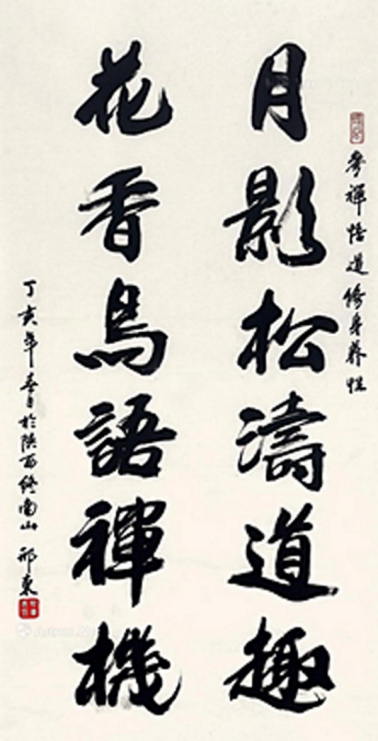 參禪悟道修身養性
月影松濤道趣
花香鳥語禪機
丁亥年春日於陝西終南山 邢東